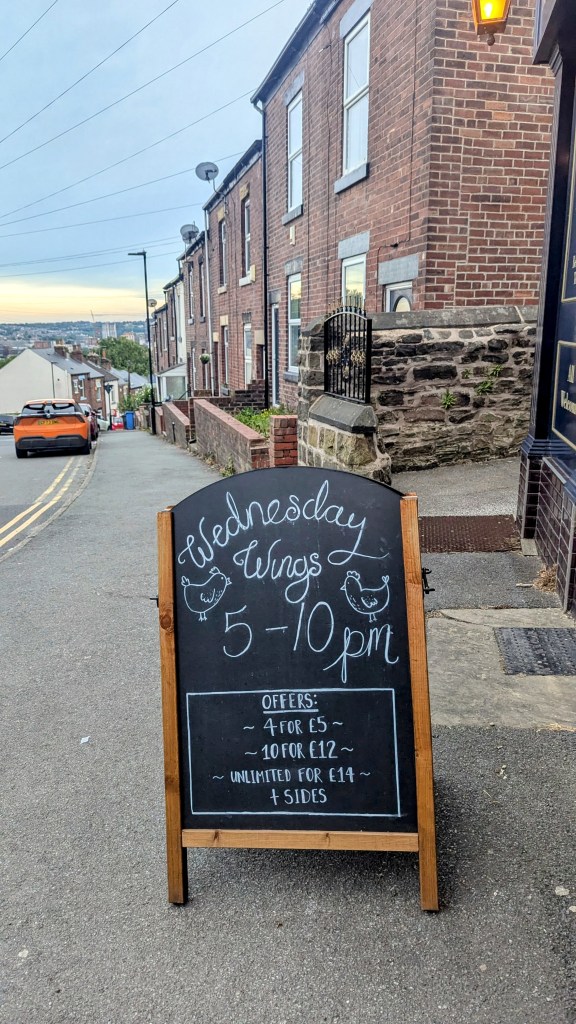 Wednesday
Wings
5-10
pm
OFFERS:
~ 4 FOR £5 ~
~ 10 FOR £12 ~
~ UNLIMITED FOR £14 ~
+ SIDES
All
Welcome